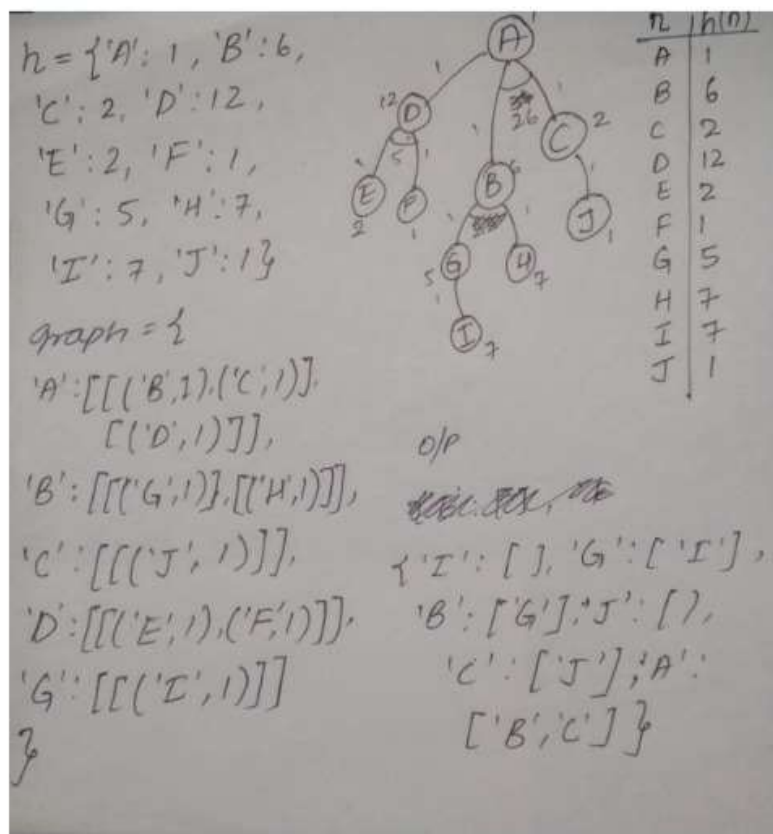 h = {'A': 1, 'B': 6,
'C': 2, 'D': 12,
'E': 2, 'F': 1,
'G': 5, 'H': 7,
'I': 7, 'J': 1}
graph = {
'A': [[('B', 1), ('C', 1)],
[('D', 1)]],
'B': [[('G', 1)], [('H', 1)]],
'C': [[('J', 1)]],
'D': [[('E', 1), ('F', 1)]],
'G': [[('I', 1)]]
}
A 1
1
1
1
12 D
26
C 2
5
1
1
B 6
1
E 2
F 1
J 1
1
1
5 G
H 7
1
I 7
n h(n)
A 1
B 6
C 2
D 12
E 2
F 1
G 5
H 7
I 7
J 1
O/P
{'I': [], 'G': ['I'],
'B': ['G'], 'J': [],
'C': ['J'], 'A':
['B', 'C']}